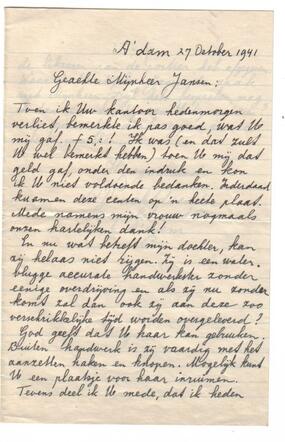 A'dam 27 October 1941
Geachte Mijnheer Jansen:
Toen ik Uw kantoor hedenmorgen
verliet, bemerkte ik pas goed, wat U
mij gaf. f 5,:! Ik was (en dat zult
U wel bemerkt hebben) toen U mij dat
geld gaf, onder den indruk en kon
ik U niet voldoende bedanken. Inderdaad
kwamen deze centen op 'n heete plaat.
Mede namens mijn vrouw nogmaals
onzen hartelijken dank!
En nu wat betreft mijn dochter, kan
zij helaas niet zijgen. Zij is een water
vlugge accurate handwerkster zonder
eenige overdrijving en als zij nu zonder
komt zal dan ook zij aan deze zoo
verschrikkelijke tijd worden overgeleverd?
God geeft dat U haar kan gebruiken.
Buiten handwerk is zij vaardig met het
aanzetten haken en knopen. Mogelijk kunt
U een plaatsje voor haar inruimen.
Tevens deel ik U mede, dat ik heden